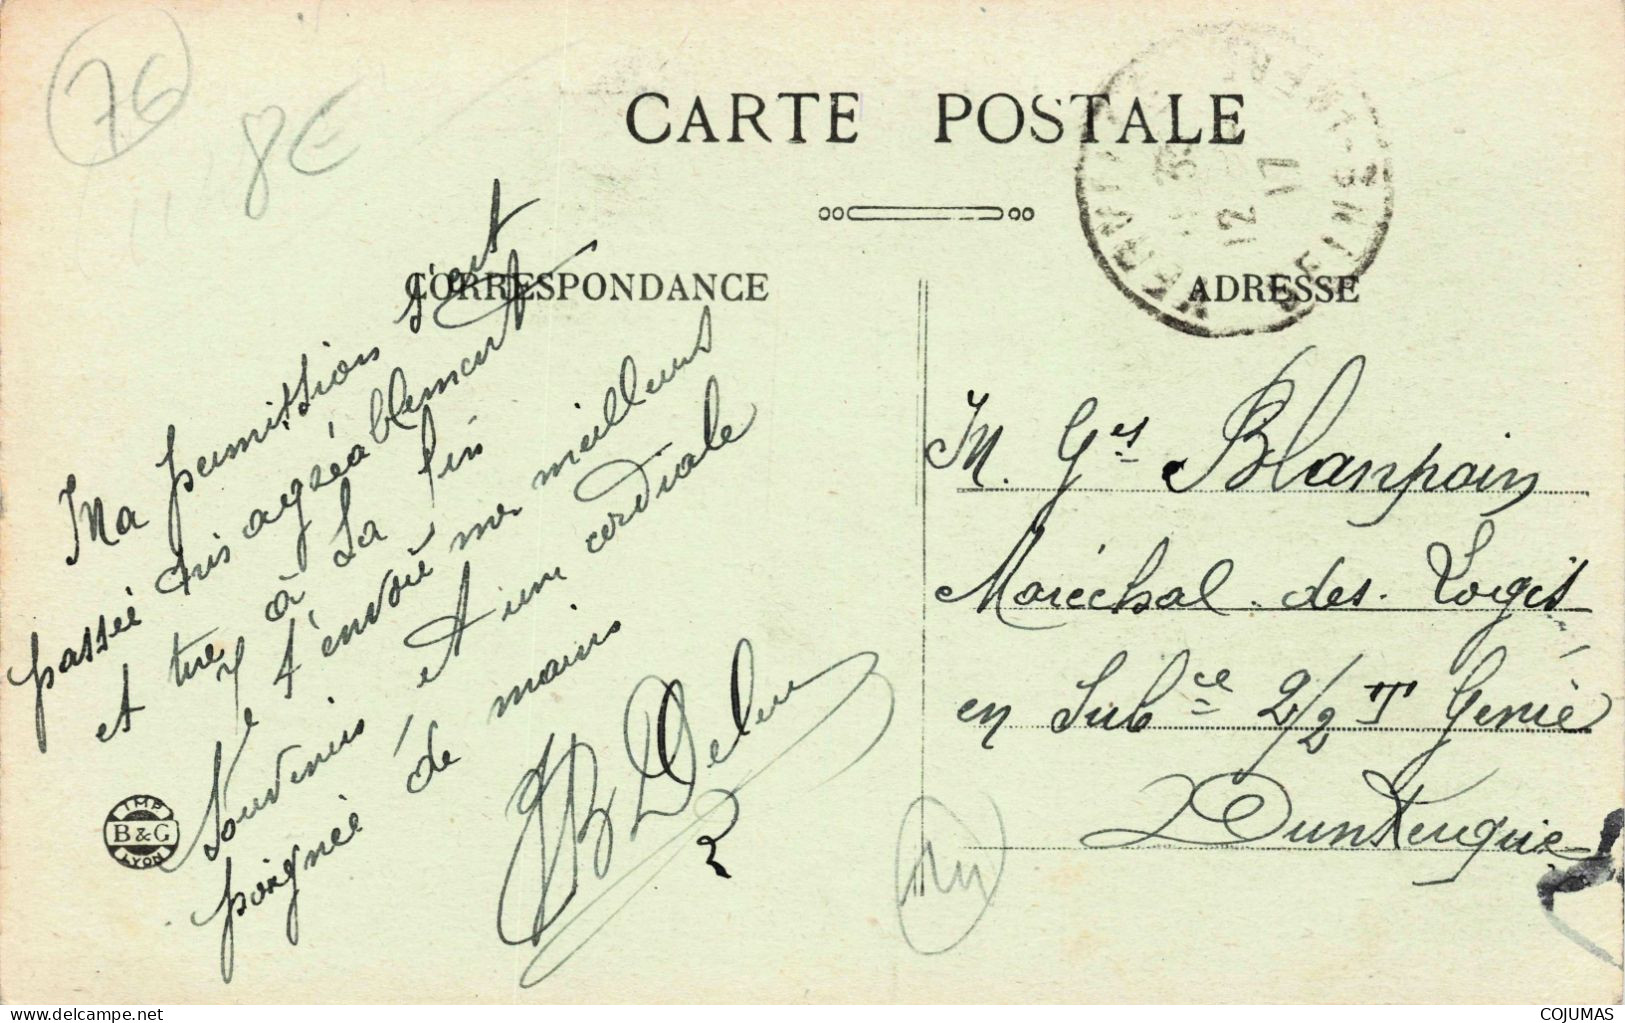 76
8€
CARTE POSTALE
CORRESPONDANCE
ADRESSE
12 17
Ma permission s'est
passée très agréablement
et tire à la fin
Je t'envoie mes meilleurs
souvenirs et une cordiale
poignée de mains
IMP
B & G
LYON
M. Ges Blanpain
Maréchal des Logis
en Subce 2/2 T Génie
Dunkerque
delcampe.net
COJUMAS